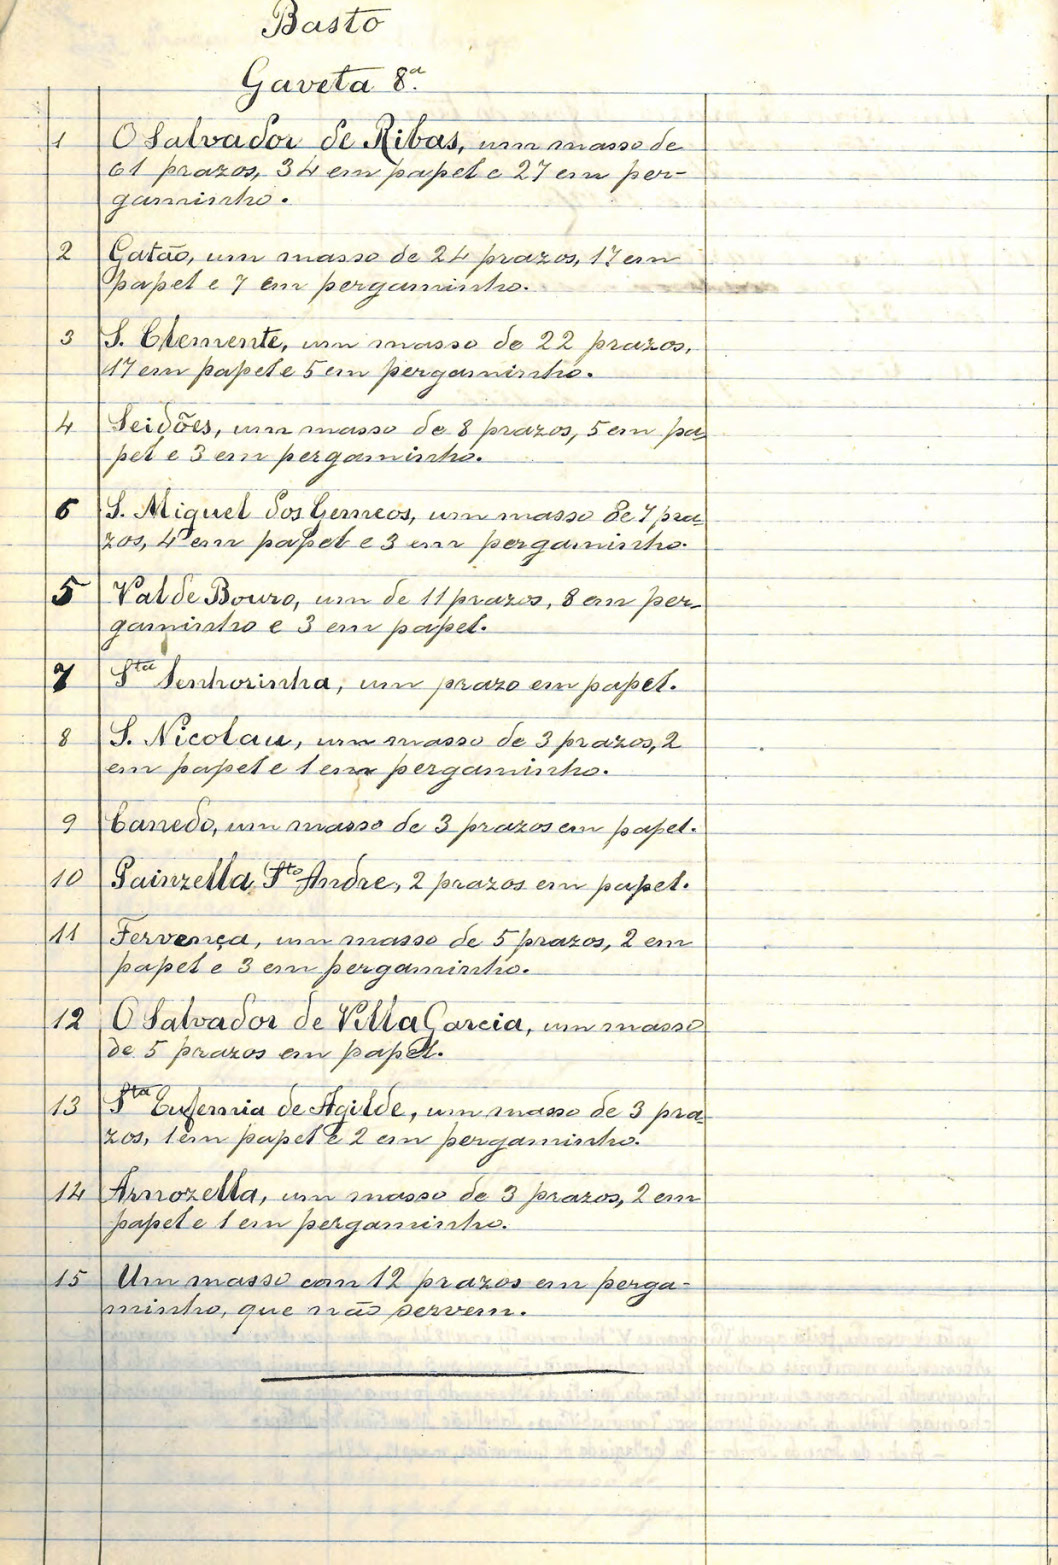 Basto
Gaveta 8.ª
1 O Salvador de Ribas, um masso de
61 prazos, 34 em papel e 27 em per-
gaminho.
2 Gatão, um masso de 24 prazos, 17 em
papel e 7 em pergaminho.
3 S. Clemente, um masso de 22 prazos,
17 em papel e 5 em pergaminho.
4 Seidões, um masso de 8 prazos, 5 em pa-
pel e 3 em pergaminho.
6 S. Miguel dos Gemeos, um masso de 7 pra-
zos, 4 em papel e 3 em pergaminho.
5 Val de Bouro, um de 11 prazos, 8 em per-
gaminho e 3 em papel.
7 Sta Senhorinha, um prazo em papel.
8 S. Nicolau, um masso de 3 prazos, 2
em papel e 1 em pergaminho.
9 Canedo, um masso de 3 prazos em papel.
10 Painzella, Sto Andre, 2 prazos em papel.
11 Fervença, um masso de 5 prazos, 2 em
papel e 3 em pergaminho.
12 O Salvador de Villa Garcia, um masso
de 5 prazos em papel.
13 Sta Eufemia de Agilde, um masso de 3 pra-
zos, 1 em papel e 2 em pergaminho.
14 Arnozella, um masso de 3 prazos, 2 em
papel e 1 em pergaminho.
15 Um masso com 12 prazos em perga-
minho, que não servem.